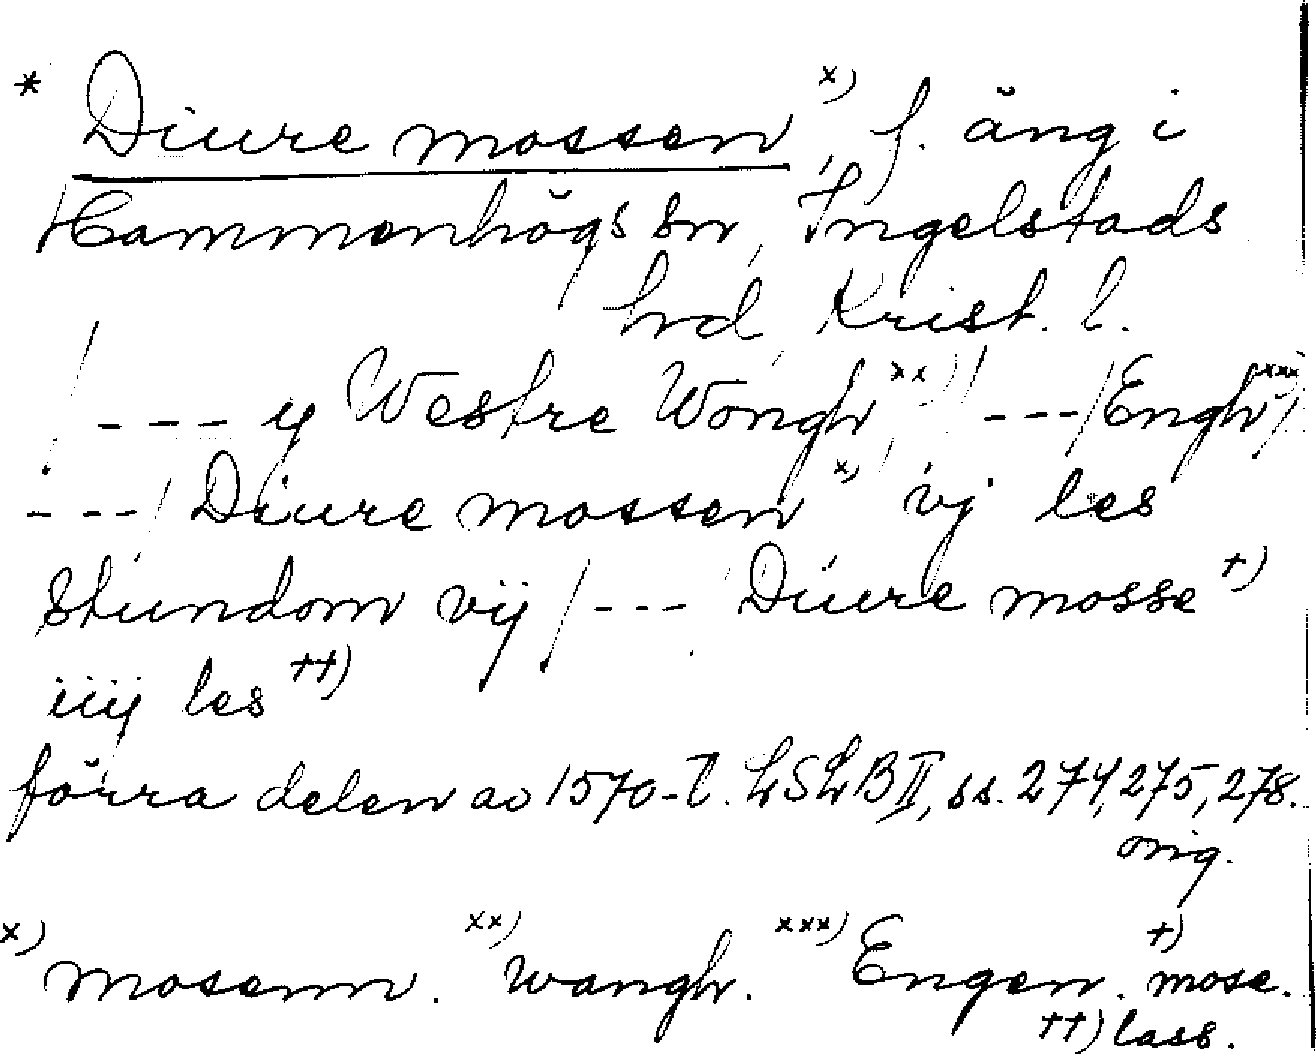 * Diure mossen x), f. äng i
Hammenhögs sn, Ingelstads
hrd, Krist. l.
/--- y Westre Wongh xx)/ ---/Engh xxx)/
---/ Diure mossen x) vj les
stundom vij /--- Diure mosse +)
iiij les ++)
förra delen av 1570-t. LSLB II, ss. 274, 275, 278.
orig.
x) mosenn. xx) wangh. xxx) Engen. +) mose.
++) lass.